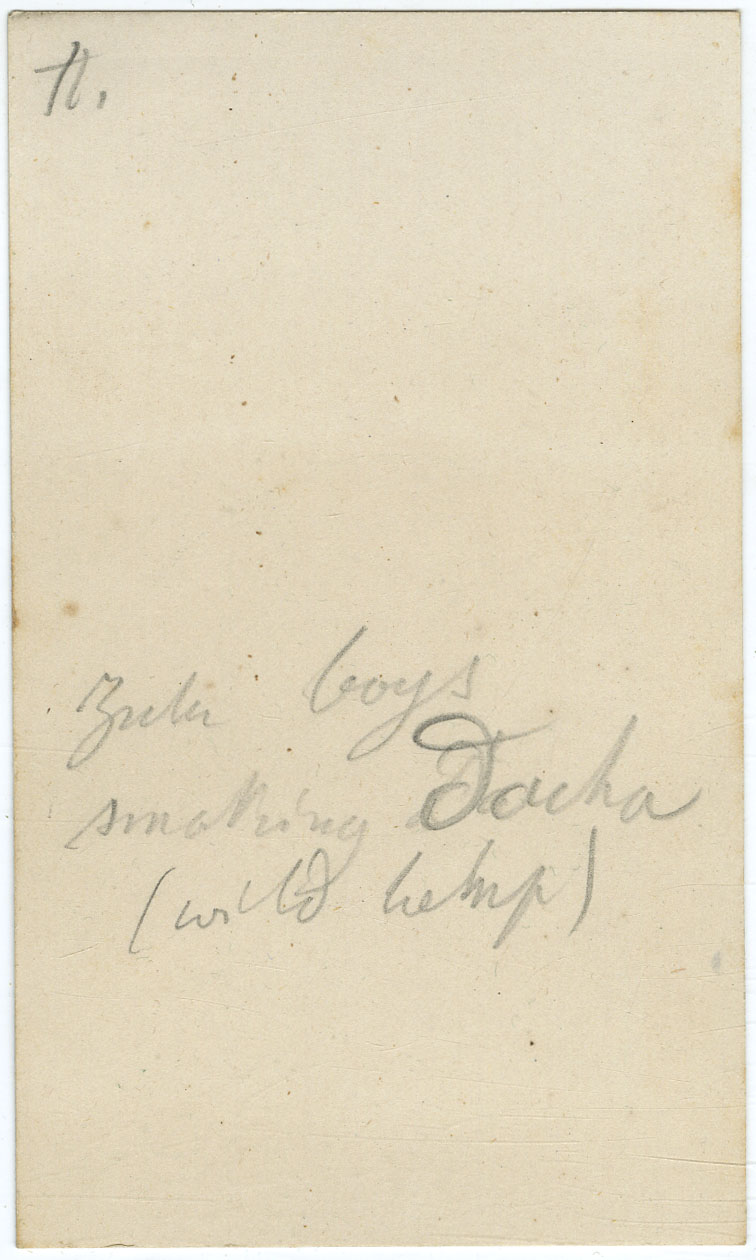 Zulu boys
smoking Dacha
(wild hemp)